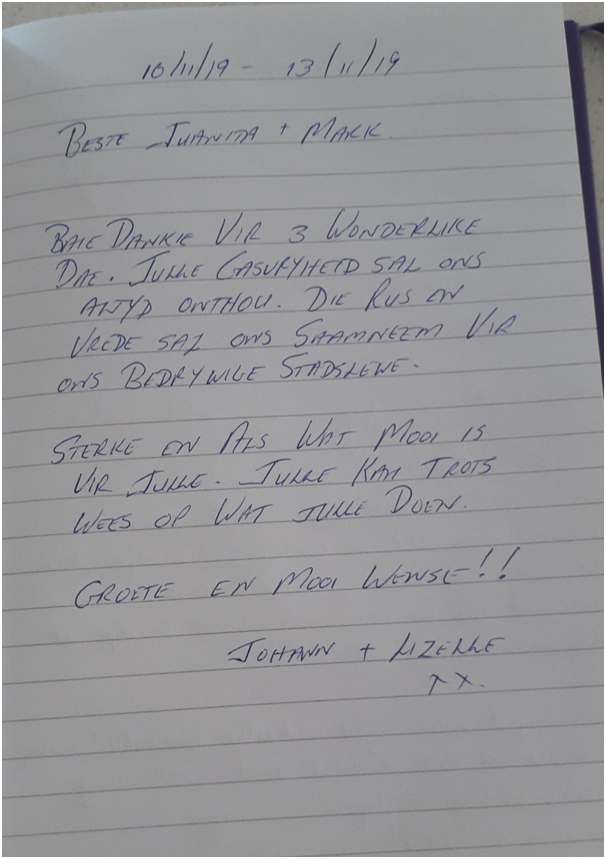 10/11/19 - 13/11/19
BESTE JUANITA + MARK.
BAIE DANKIE VIR 3 WONDERLIKE
DAE. JULLE GASVRYHEID SAL ONS
ALTYD ONTHOU. DIE RUS EN
VREDE SAL ONS SAAMNEEM VIR
ONS BEDRYWIGE STADSLEWE.
STERKE EN ALS WAT MOOI IS
VIR JULLE. JULLE KAN TROTS
WEES OP WAT JULLE DOEN.
GROETE EN MOOI WENSE!!
JOHANN + LIZELLE
XX.